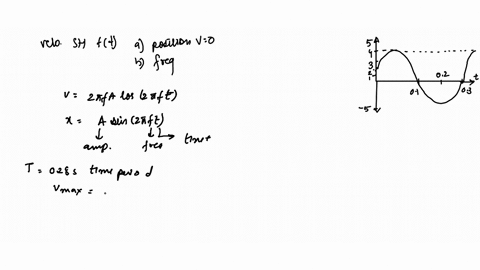 velo. SH f(t) a) position v=0
b) freq
v = 2πfA cos (2πft)
x = A sin(2πft)
amp. freq time
T = 0.28 s time period
vmax = .
5
4
3
2
1
-5
0.1
0.2
0.3
t